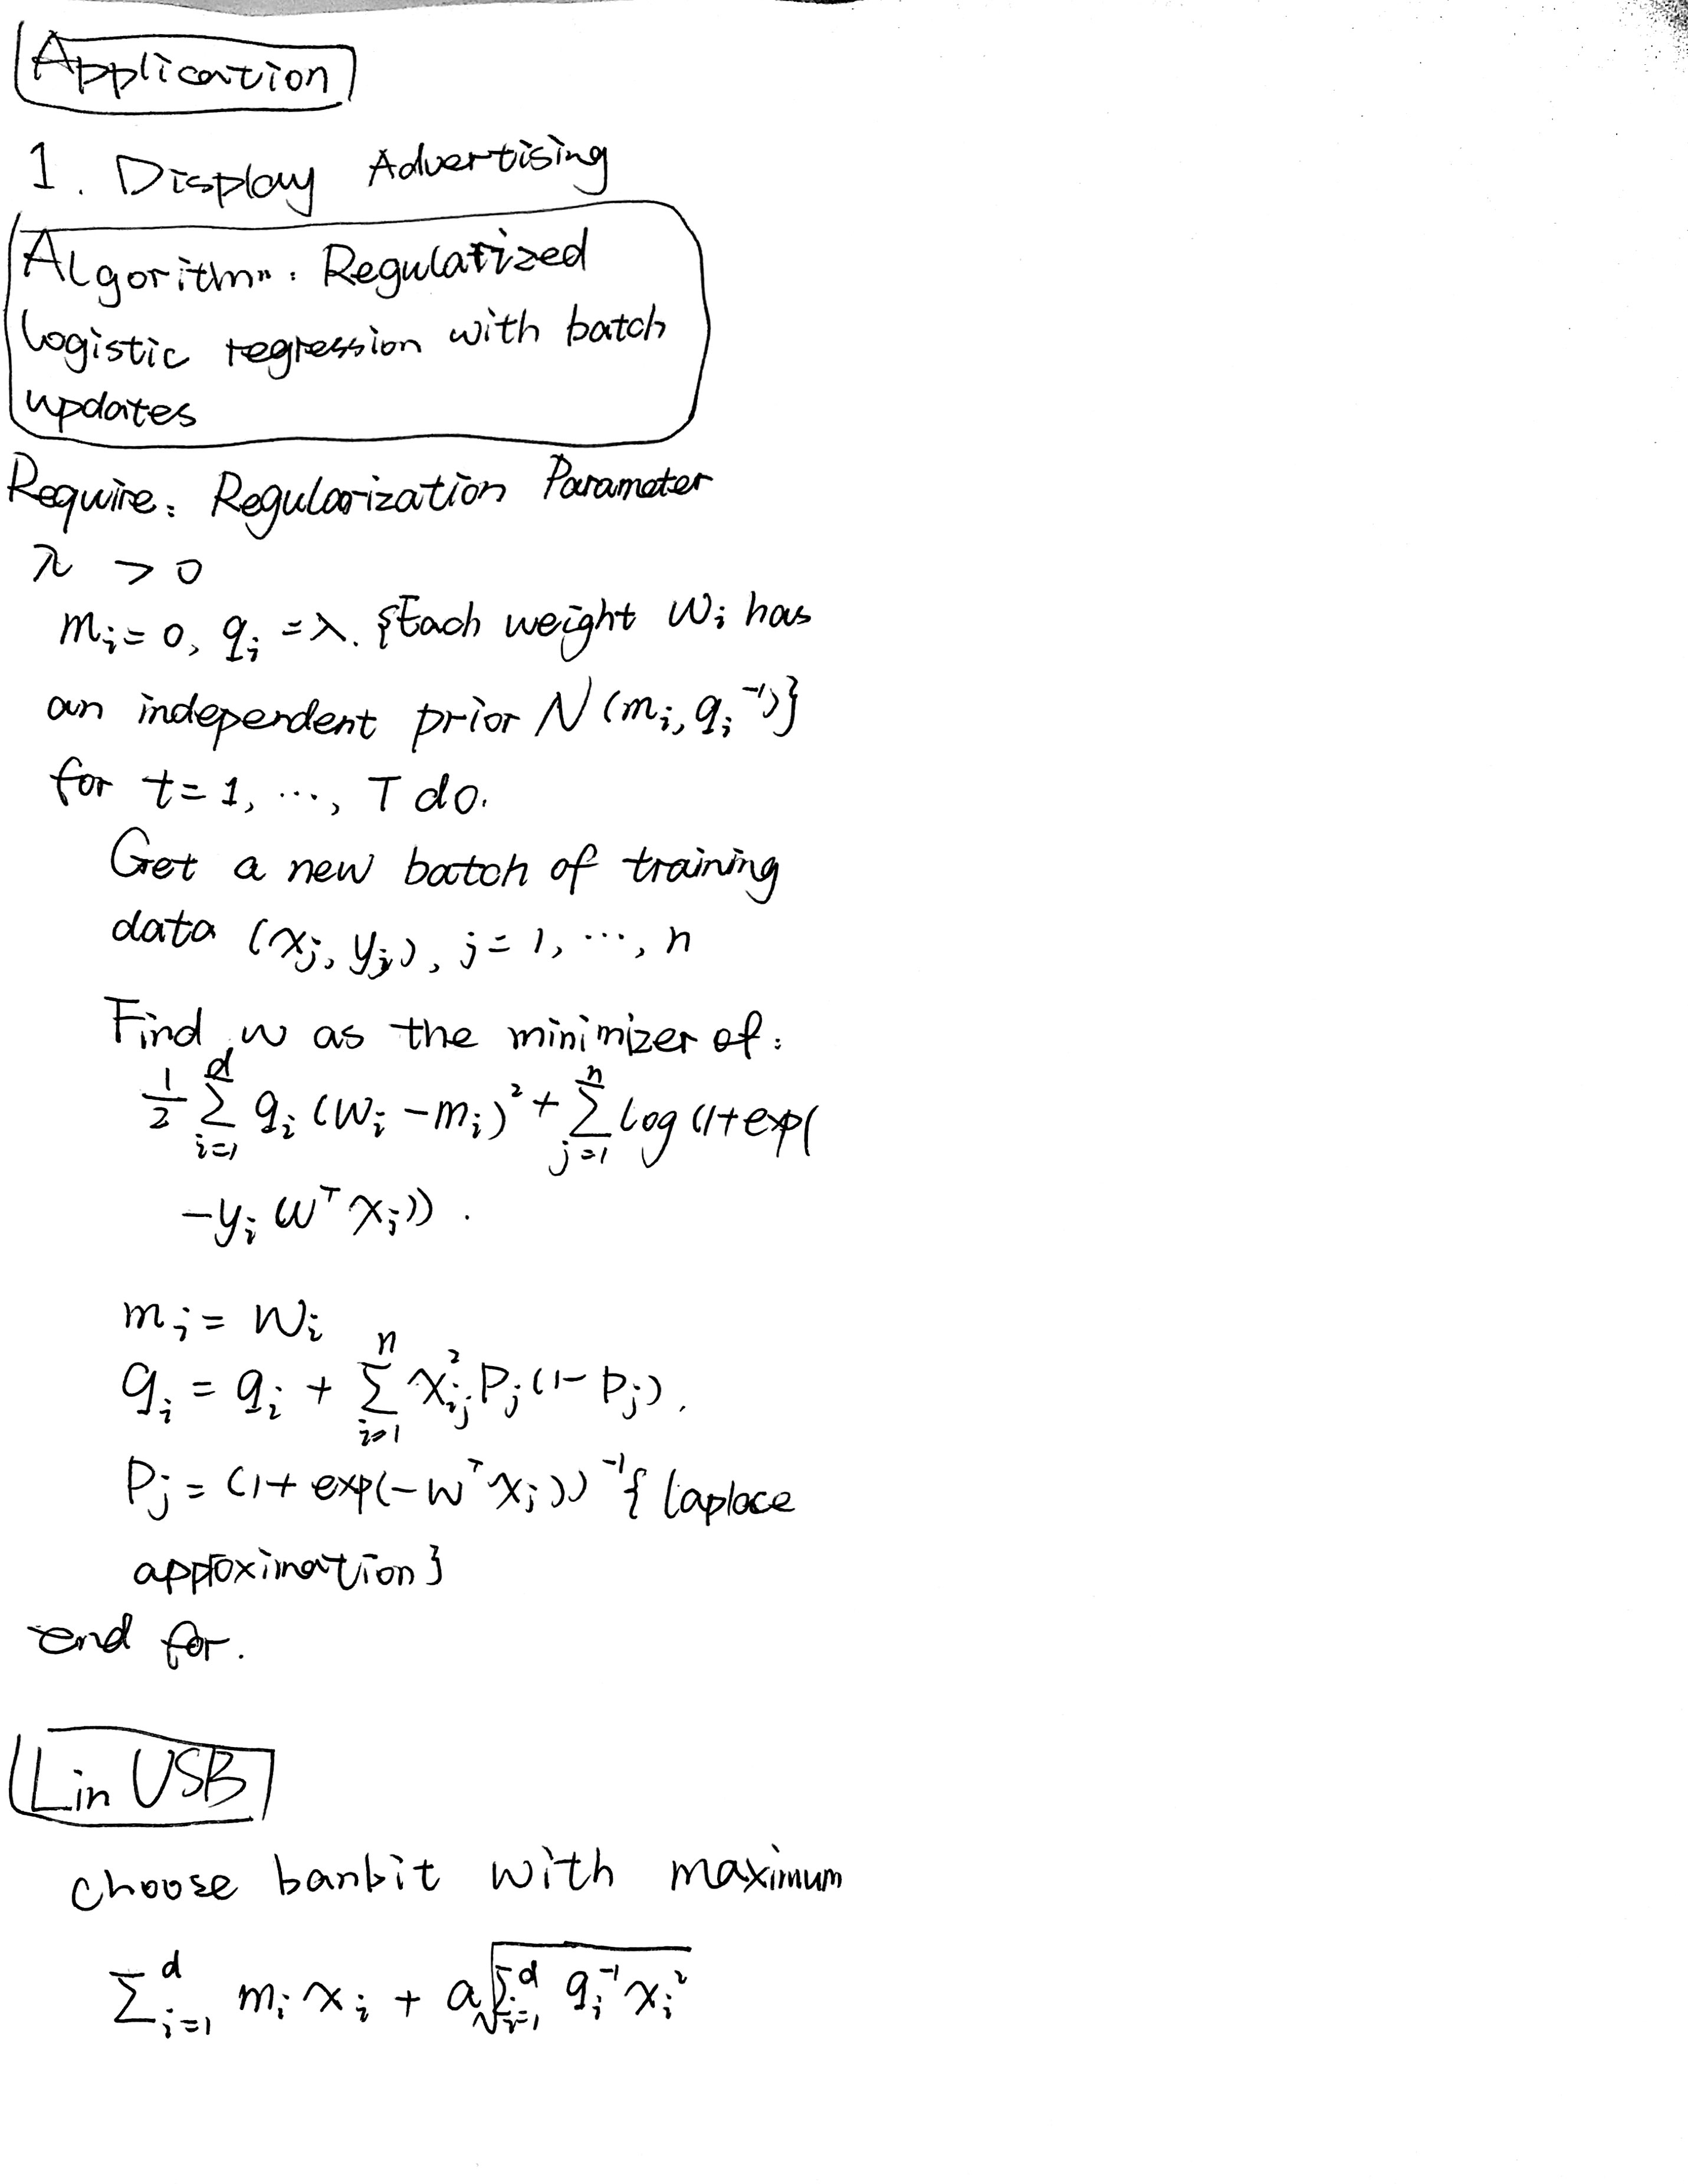 Application
1. Display Advertising
Algorithm: Regulatized
logistic regression with batch
updates
Require: Regularization Parameter
λ > 0
mᵢ = 0, qᵢ = λ. {Each weight wᵢ has
an independent prior N(mᵢ, qᵢ⁻¹)}
for t = 1, ..., T do.
Get a new batch of training
data (xⱼ, yⱼ), j = 1, ..., n
Find w as the minimizer of:
1/2 ∑_{i=1}^{d} qᵢ(wᵢ - mᵢ)² + ∑_{j=1}^{n} log(1+exp(
-yᵢ wᵀxⱼ)).
mᵢ = wᵢ
qᵢ = qᵢ + ∑_{i=1}^{n} xᵢⱼ² Pⱼ(1-Pⱼ).
Pⱼ = (1+exp(-wᵀxⱼ))⁻¹ {laplace
approximation}
end for.
Lin USB
choose banbit with maximum
∑_{i=1}^{d} mᵢxᵢ + a√(∑_{i=1}^{d} qᵢ⁻¹xᵢ²)